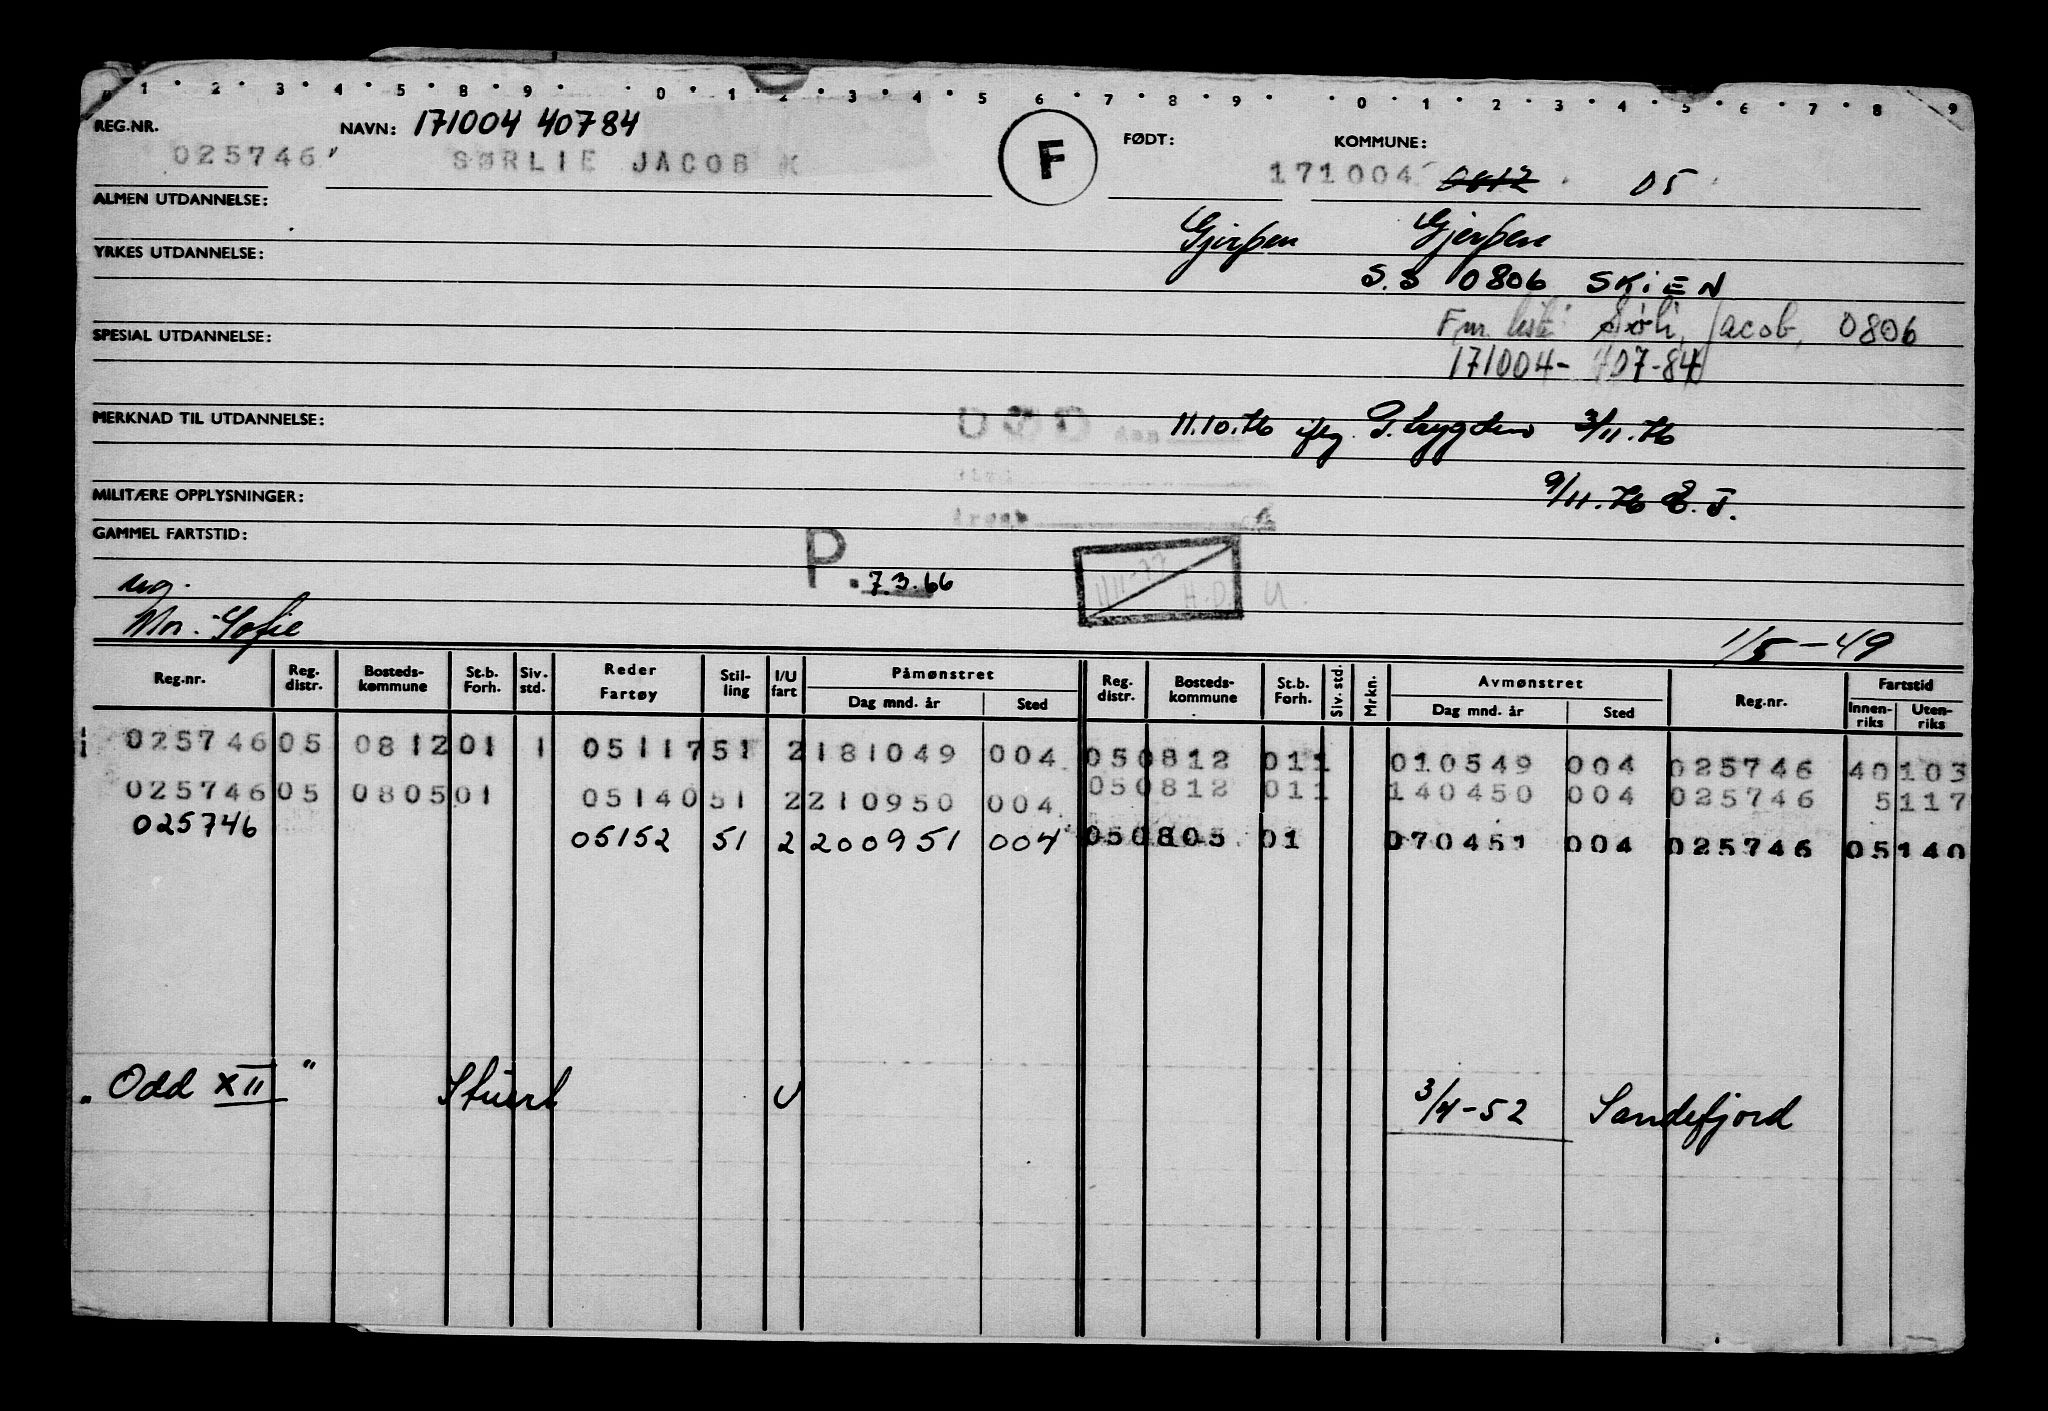 1 2 3 4 5 6 7 8 9 0 1 2 3 4 5 6 7 8 9 0 1 2 3 4 5 6 7 8 9
REG.NR. NAVN: 171004 40784 F FØDT: KOMMUNE:
025746 SØRLIE JACOB K 171004 0812 05
ALMEN UTDANNELSE:
Gjerpen Gjerpen
YRKES UTDANNELSE:
S.S 0806 SKIEN
Jacob, 0806
SPESIAL UTDANNELSE:
171004- 407-84
MERKNAD TIL UTDANNELSE: DØD 11.10.76 iflg. trygden 3/11.76
9/11.76
MILITÆRE OPPLYSNINGER:
GAMMEL FARTSTID:
P. 7.3.66
ug.
Mor. Sofie
1/5-49
Reg.nr. Reg. distr. Bosteds-kommune St.b. Forh. Siv. std. Reder Fartøy Stil-ling I/U fart Påmønstret Dag mnd. år Sted Reg. distr. Bosteds-kommune St.b. Forh. Siv. std. Mrkn. Avmønstret Dag mnd. år Sted Reg.nr. Fartstid Innen-riks Uten-riks
025746 05 0812 01 1 05117 51 2 181049 004 05 0812 01 1 010549 004 025746 40103
025746 05 0805 01 05140 51 2 210950 004 05 0812 01 1 140450 004 025746 5117
025746 05152 51 2 200951 004 05 0805 01 070451 004 025746 05140
"Odd XII" Stuert U 3/4-52 Sandefjord